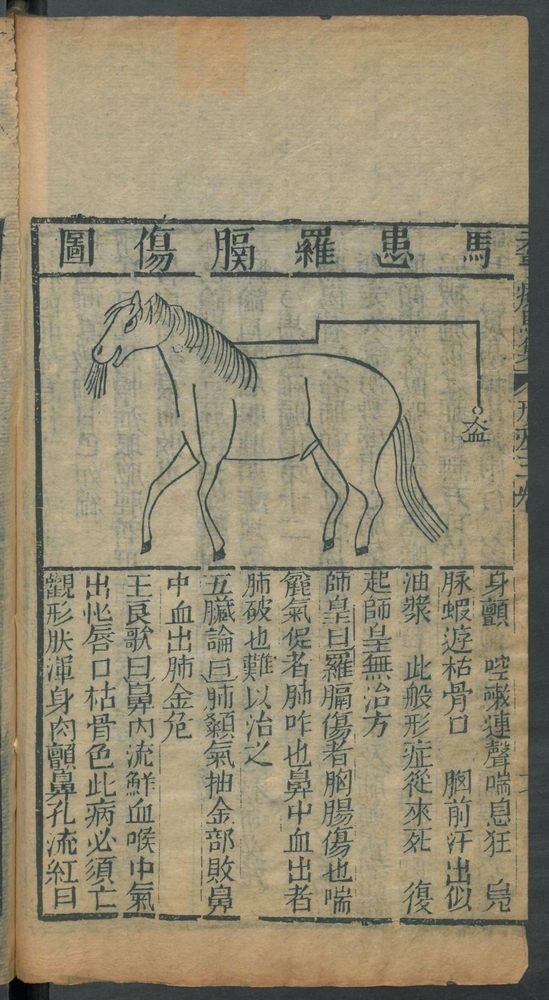 馬患羅膈傷圖
身顫　啌嗽連聲喘息狂　㒵
脉蝦遊枯骨口　胸前汗出似
油漿　此般形症從來死　復
起師皇無治方
師皇曰羅膈傷者胸腸傷也喘
麄氣促者肺咋也鼻中血出者
肺破也難以治之
五臟論曰肺纇氣抽金部敗鼻
中血出肺金危
王良歌曰鼻內流鮮血喉中氣
出忙唇口枯骨色此病必須亡
觀形肤渾身肉顫鼻孔流紅日